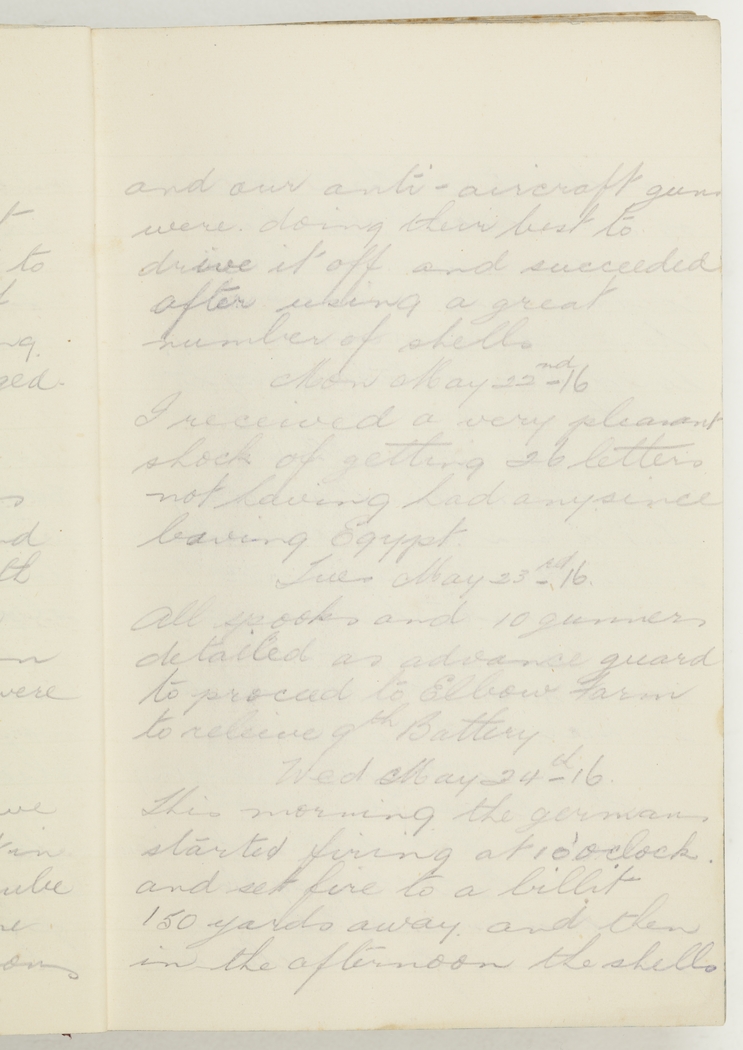 and our anti-aircraft guns
were. doing their best to
drive it off and succeeded
after using a great
number of shells
Mon May 22nd-16
I received a very pleasant
shock of getting 26 letters
not having had any since
leaving Egypt
Tues May 23rd-16.
All spooks and 10 gunners
detailed as advance guard
to proceed to Elbow Farm
to releive 9th Battery
Wed May 24d-16.
This morning the germans
started firing at 10 oclock.
and set fire to a billit
150 yards away. and then
in the afternoon the shells